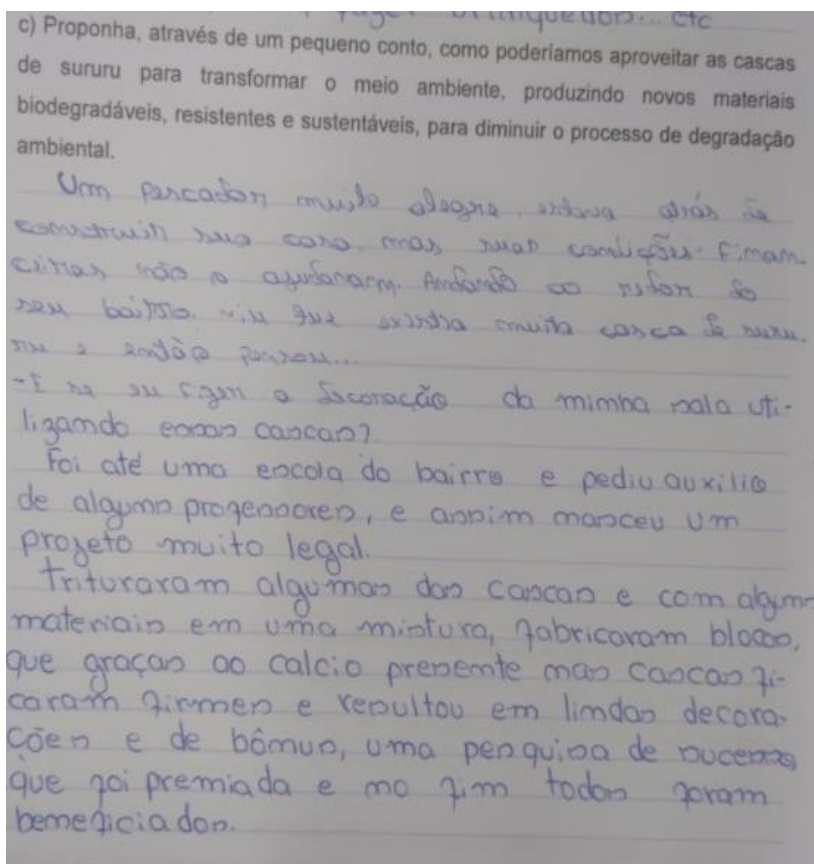 fazer brinquedos... etc
c) Proponha, através de um pequeno conto, como poderíamos aproveitar as cascas
de sururu para transformar o meio ambiente, produzindo novos materiais
biodegradáveis, resistentes e sustentáveis, para diminuir o processo de degradação
ambiental.
Um pescador muito alegre, estava atrás de
construir sua casa, mas suas condições finan
ceiras não o ajudaram. Andando ao redor do
seu bairro, viu que existia muita casca de suru.
ru e então pensou...
- E se eu fizer a decoração da minha sala uti-
lizando essas cascas?
Foi até uma escola do bairro e pediu auxilio
de alguns professores, e assim nasceu um
projeto muito legal.
Trituraram algumas das cascas e com alguns
materiais em uma mistura, fabricaram blocos,
que graças ao calcio presente nas cascas fi-
caram firmes e resultou em lindas decora-
ções e de bônus, uma pesquisa de sucesso
que foi premiada e no fim todos foram
beneficiados.